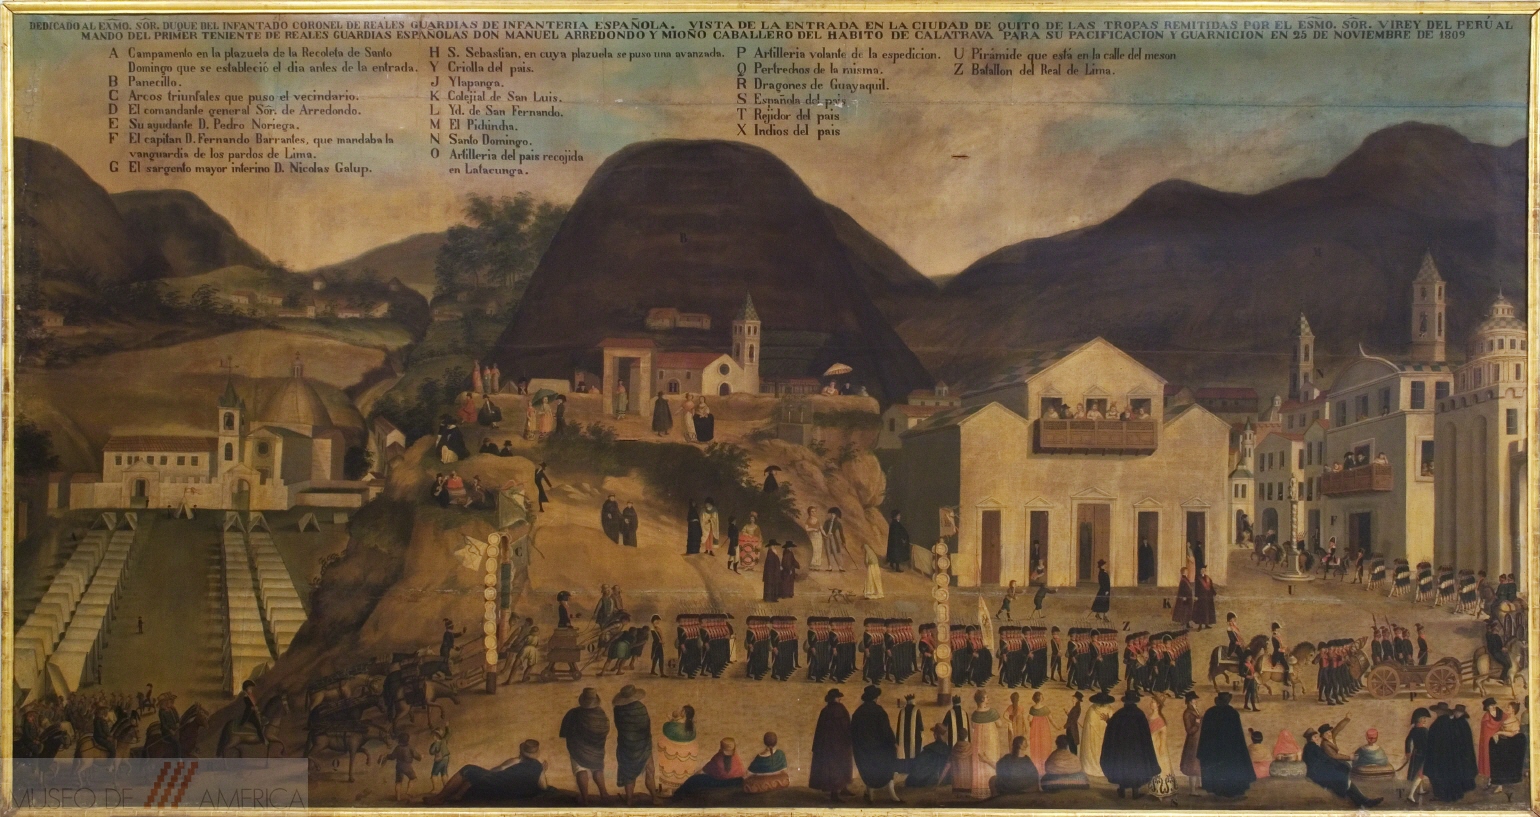 DEDICADO AL EXMO. SÔR. DUQUE DEL INFANTADO CORONEL DE REALES GUARDIAS DE INFANTERIA ESPAÑOLA. VISTA DE LA ENTRADA EN LA CIUDAD DE QUITO DE LAS TROPAS REMITIDAS POR EL ESMO. SÔR. VIREY DEL PERÚ AL
MANDO DEL PRIMER TENIENTE DE REALES GUARDIAS ESPAÑOLAS DON MANUEL ARREDONDO Y MIOÑO CABALLERO DEL HABITO DE CALATRAVA PARA SU PACIFICACION Y GUARNICION EN 25 DE NOVIEMBRE DE 1809
A Campamento en la plazuela de la Recoleta de Santo
Domingo que se estableció el dia antes de la entrada.
B Panecillo.
C Arcos triunfales que puso el vecindario.
D El comandante general Sôr. de Arredondo.
E Su ayudante D. Pedro Noriega.
F El capitan D. Fernando Barrantes, que mandaba la
vanguardia de los pardos de Lima.
G El sargento mayor interino D. Nicolas Galup.
H S. Sebastian, en cuya plazuela se puso una avanzada.
Y Criolla del pais.
J Ylapanga.
K Colejial de San Luis.
L Yd. de San Fernando.
M El Pichincha.
N Santo Domingo.
O Artilleria del pais recojida
en Latacunga.
P Artilleria volante de la espedicion.
Q Pertrechos de la misma.
R Dragones de Guayaquil.
S Española del pais
T Rejidor del pais
X Indios del pais
U Pirámide que está en la calle del meson
Z Batallon del Real de Lima.
B
K
Z
U
G
E
D
P
S
T
Y
MUSEO DE AMERICA